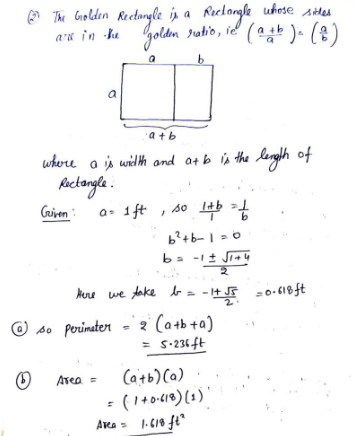 ② The Golden Rectangle is a Rectangle whose sides
are in the golden ratio, ie (a+b/a) = (a/b)
a b
a
a+b
where a is width and a+b is the length of
Rectangle.
Given: a = 1 ft , so 1+b/1 = 1/b
b²+b-1 = 0
b = -1 ± √1+4 / 2
Here we take b = -1+√5 / 2 = 0.618 ft
ⓐ so perimeter = 2 (a+b+a)
= 5.236 ft
ⓑ Area = (a+b)(a)
= (1+0.618)(1)
Area = 1.618 ft²